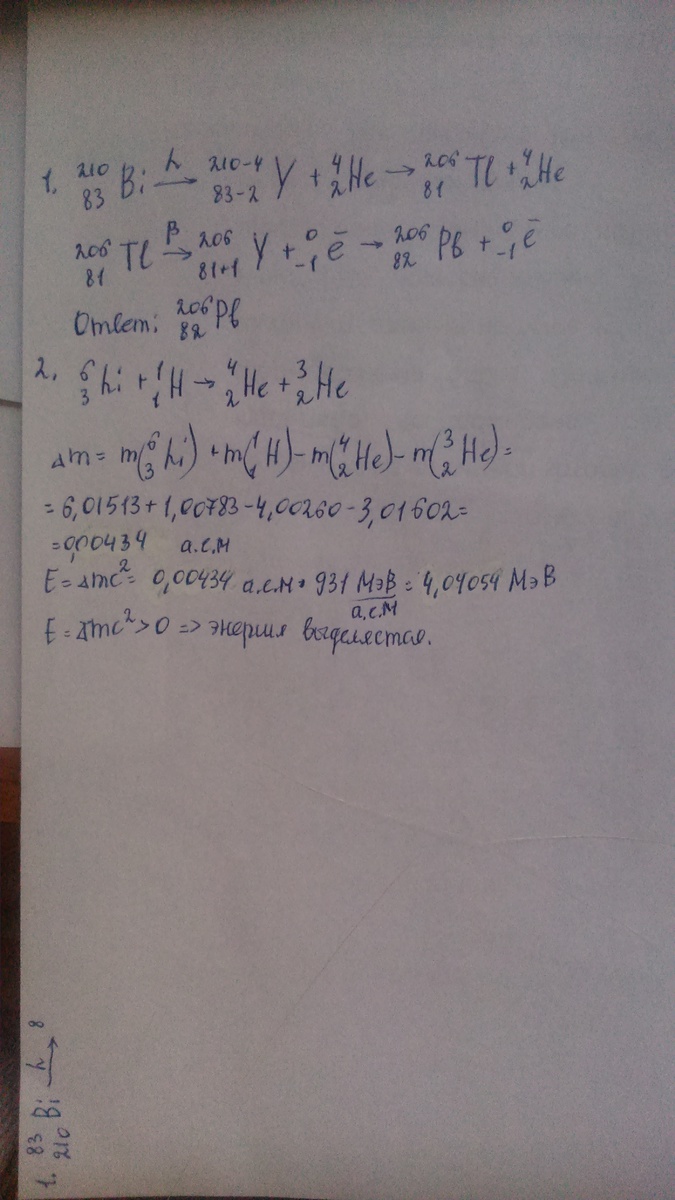 1. ²¹⁰₈₃Bi —α→ ²¹⁰⁻⁴₈₃₋₂Y + ⁴₂He → ²⁰⁶₈₁Tl + ⁴₂He
²⁰⁶₈₁Tl —β→ ²⁰⁶₈₁₊₁Y + ⁰₋₁ē → ²⁰⁶₈₂Pb + ⁰₋₁ē
Ответ: ²⁰⁶₈₂Pb
2. ⁶₃Li + ¹₁H → ⁴₂He + ³₂He
Δm = m(⁶₃Li) + m(¹₁H) - m(⁴₂He) - m(³₂He) =
= 6,01513 + 1,00783 - 4,00260 - 3,01602 =
= 0,00434 а.е.м
E = Δmc² = 0,00434 а.е.м • 931 МэВ/а.е.м = 4,04054 МэВ
E = Δmc² > 0 => энергия выделяется.
1. ⁸³₂₁₀Bi —α→ 8